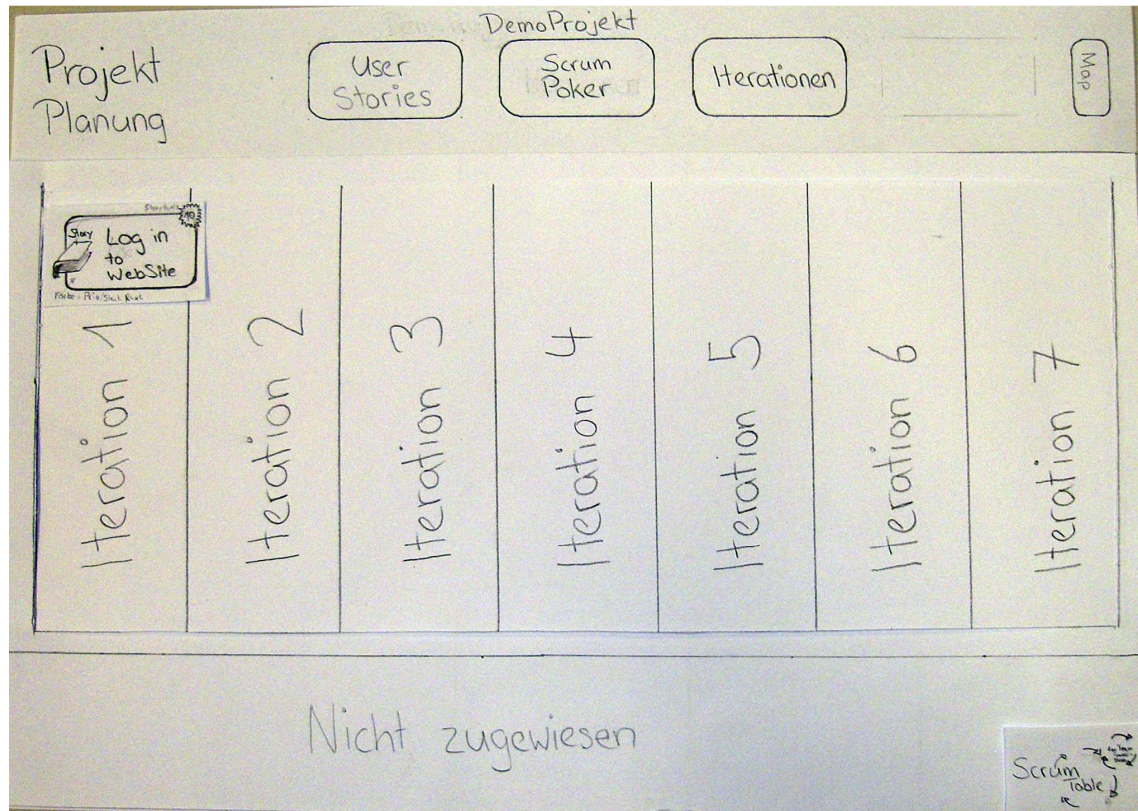 DemoProjekt
Projekt
Planung
User
Stories
Scrum
Poker
Iterationen
Map
Story
10
Log in
to
WebSite
Iteration 1
Iteration 2
Iteration 3
Iteration 4
Iteration 5
Iteration 6
Iteration 7
Nicht zugewiesen
Scrum
Table